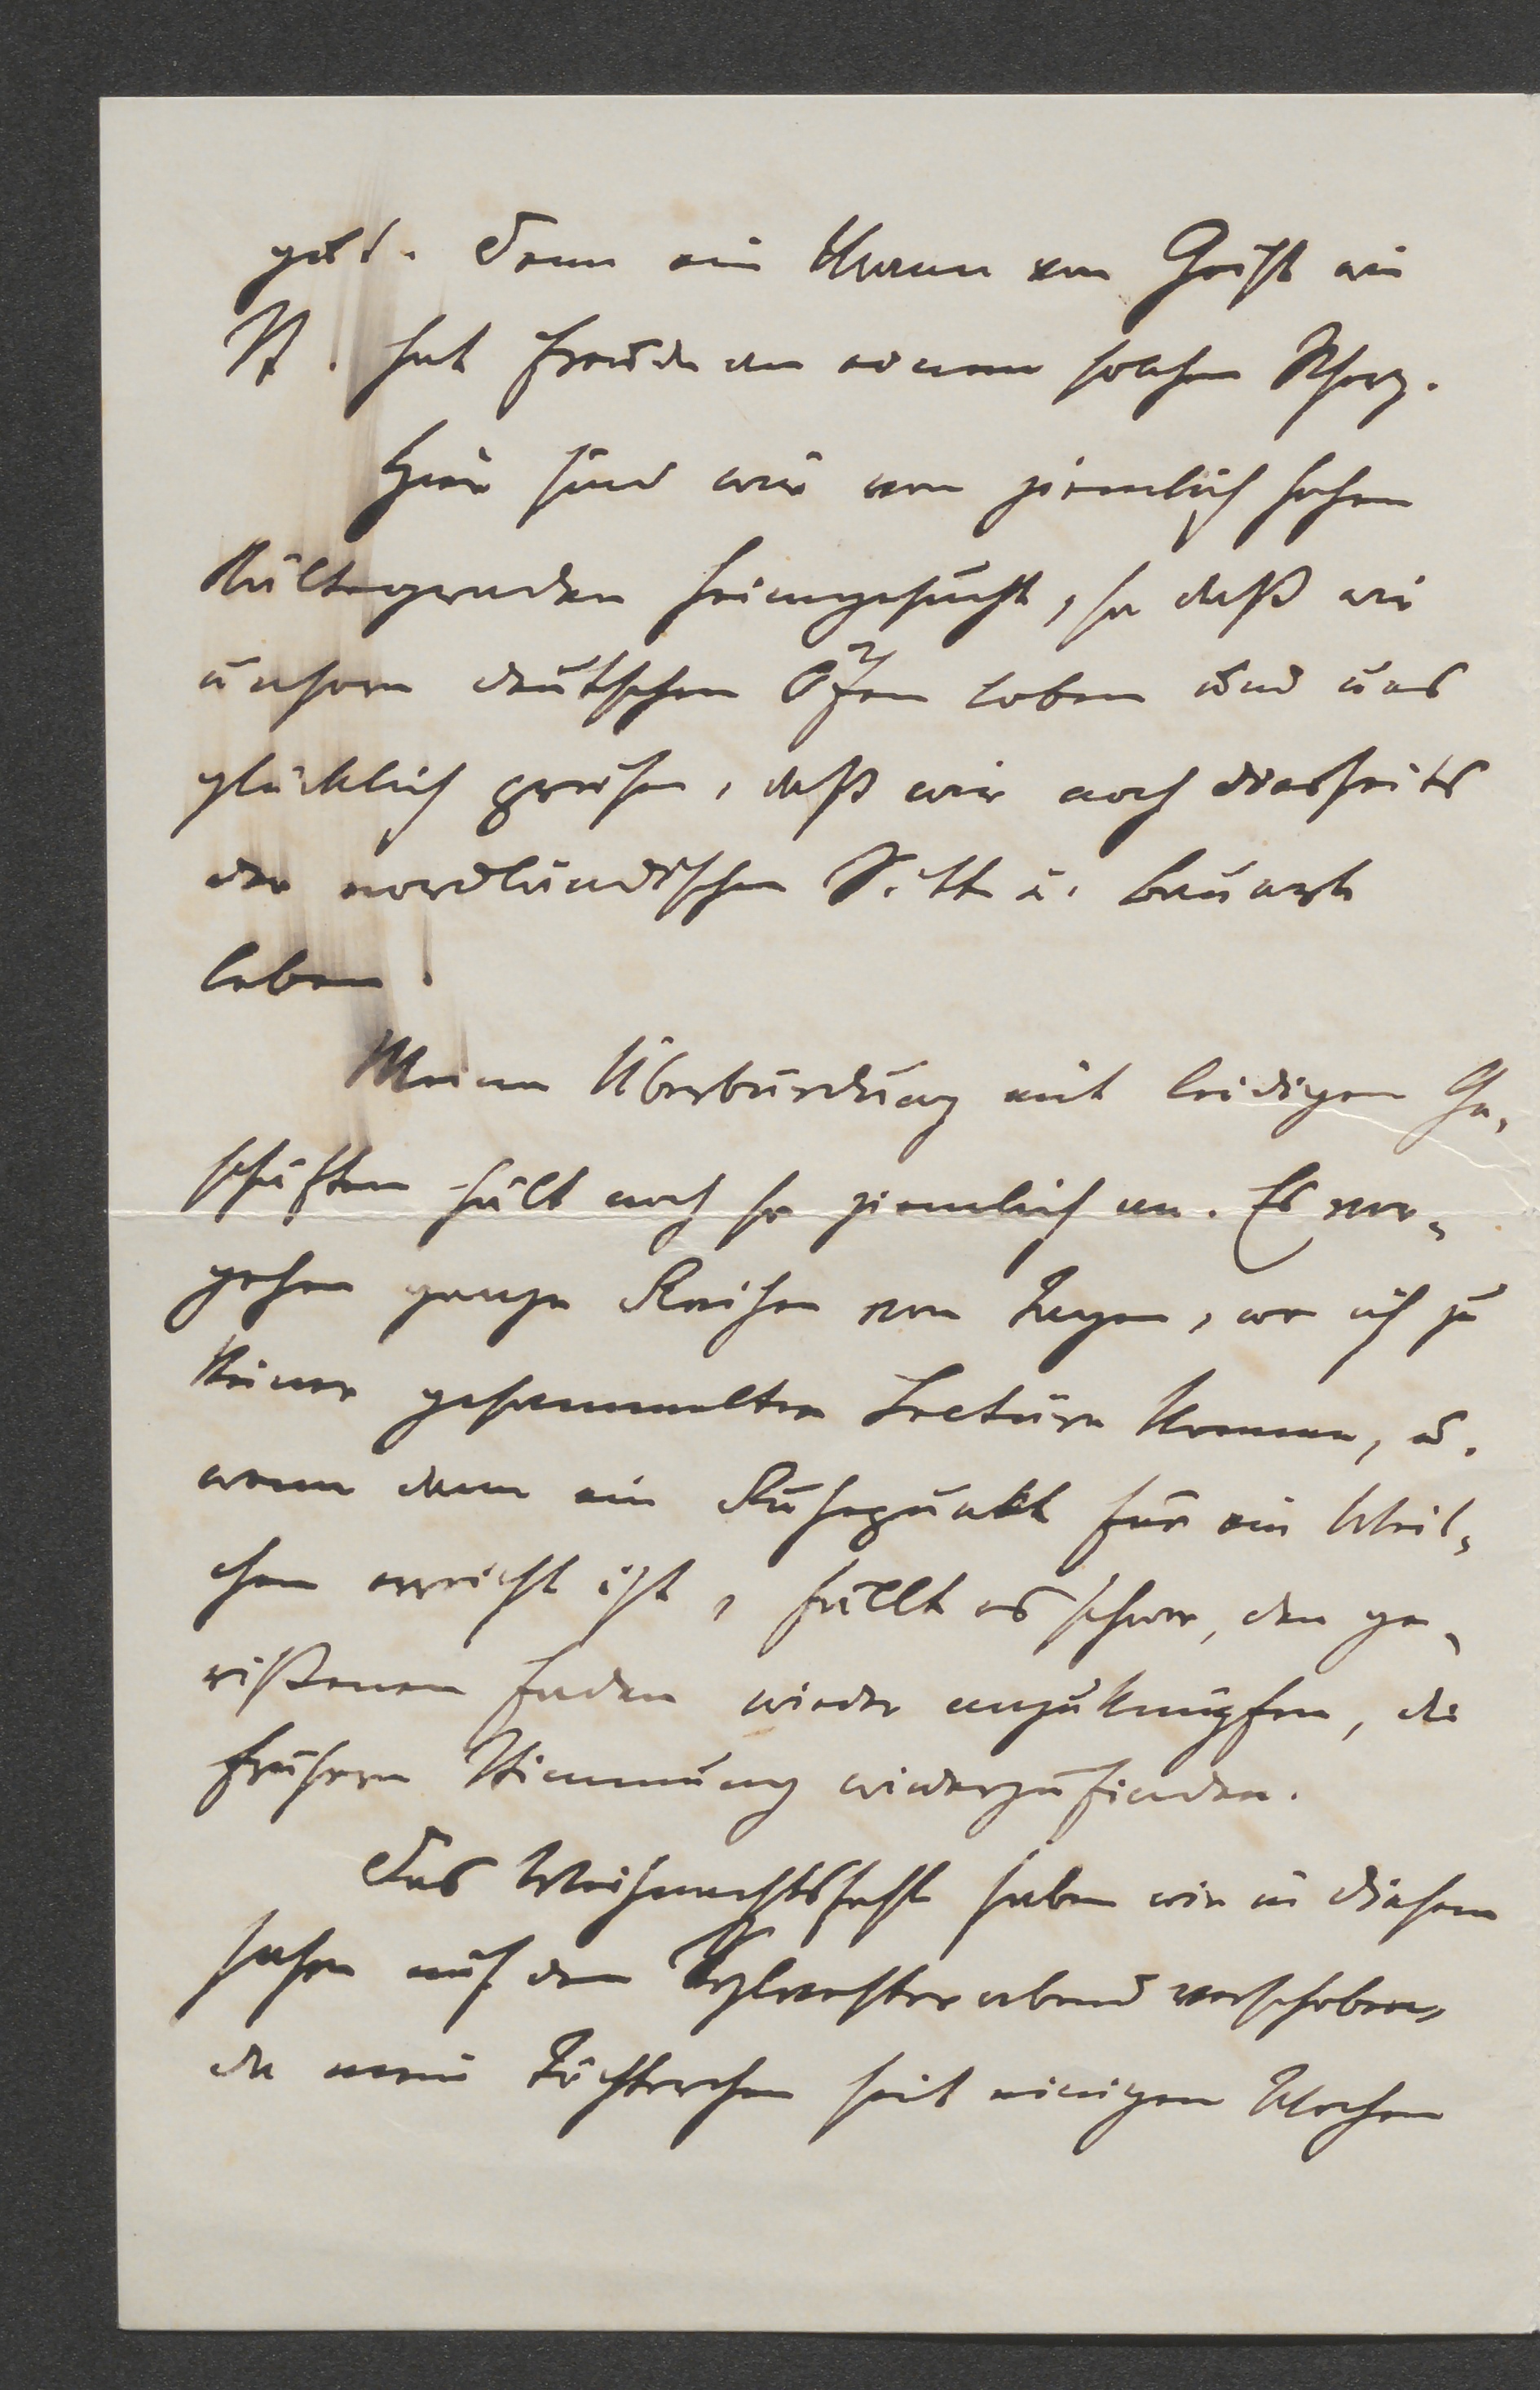 geht. Denn ein Mann von Geist wie
N. hat Freude an einem solchen Scherz.
Hier sind wir von ziemlich hohen
Kältegraden heimgesucht, so daß wir
unsern deutschen Öfen loben und uns
glücklich preisen, daß wir noch diesseits
der nordländischen Sitte u. Bauart
leben.
Meine Überbürdung mit leidigen Ge-
schäften hält noch so ziemlich an. Es ver-
gehen ganze Reihen von Tagen, wo ich zu
keiner gesammelten Lectüre komme, u.
wenn dann ein Ruhepunkt für ein Weil-
chen erreicht ist, fällt es schwer, den ge-
rißenen Faden wieder anzuknüpfen, die
frühere Stimmung wiederzufinden.
Das Weihnachtsfest haben wir in diesem
Jahre auf den Sylvesterabend verschoben,
da mein Töchterchen seit einigen Wochen